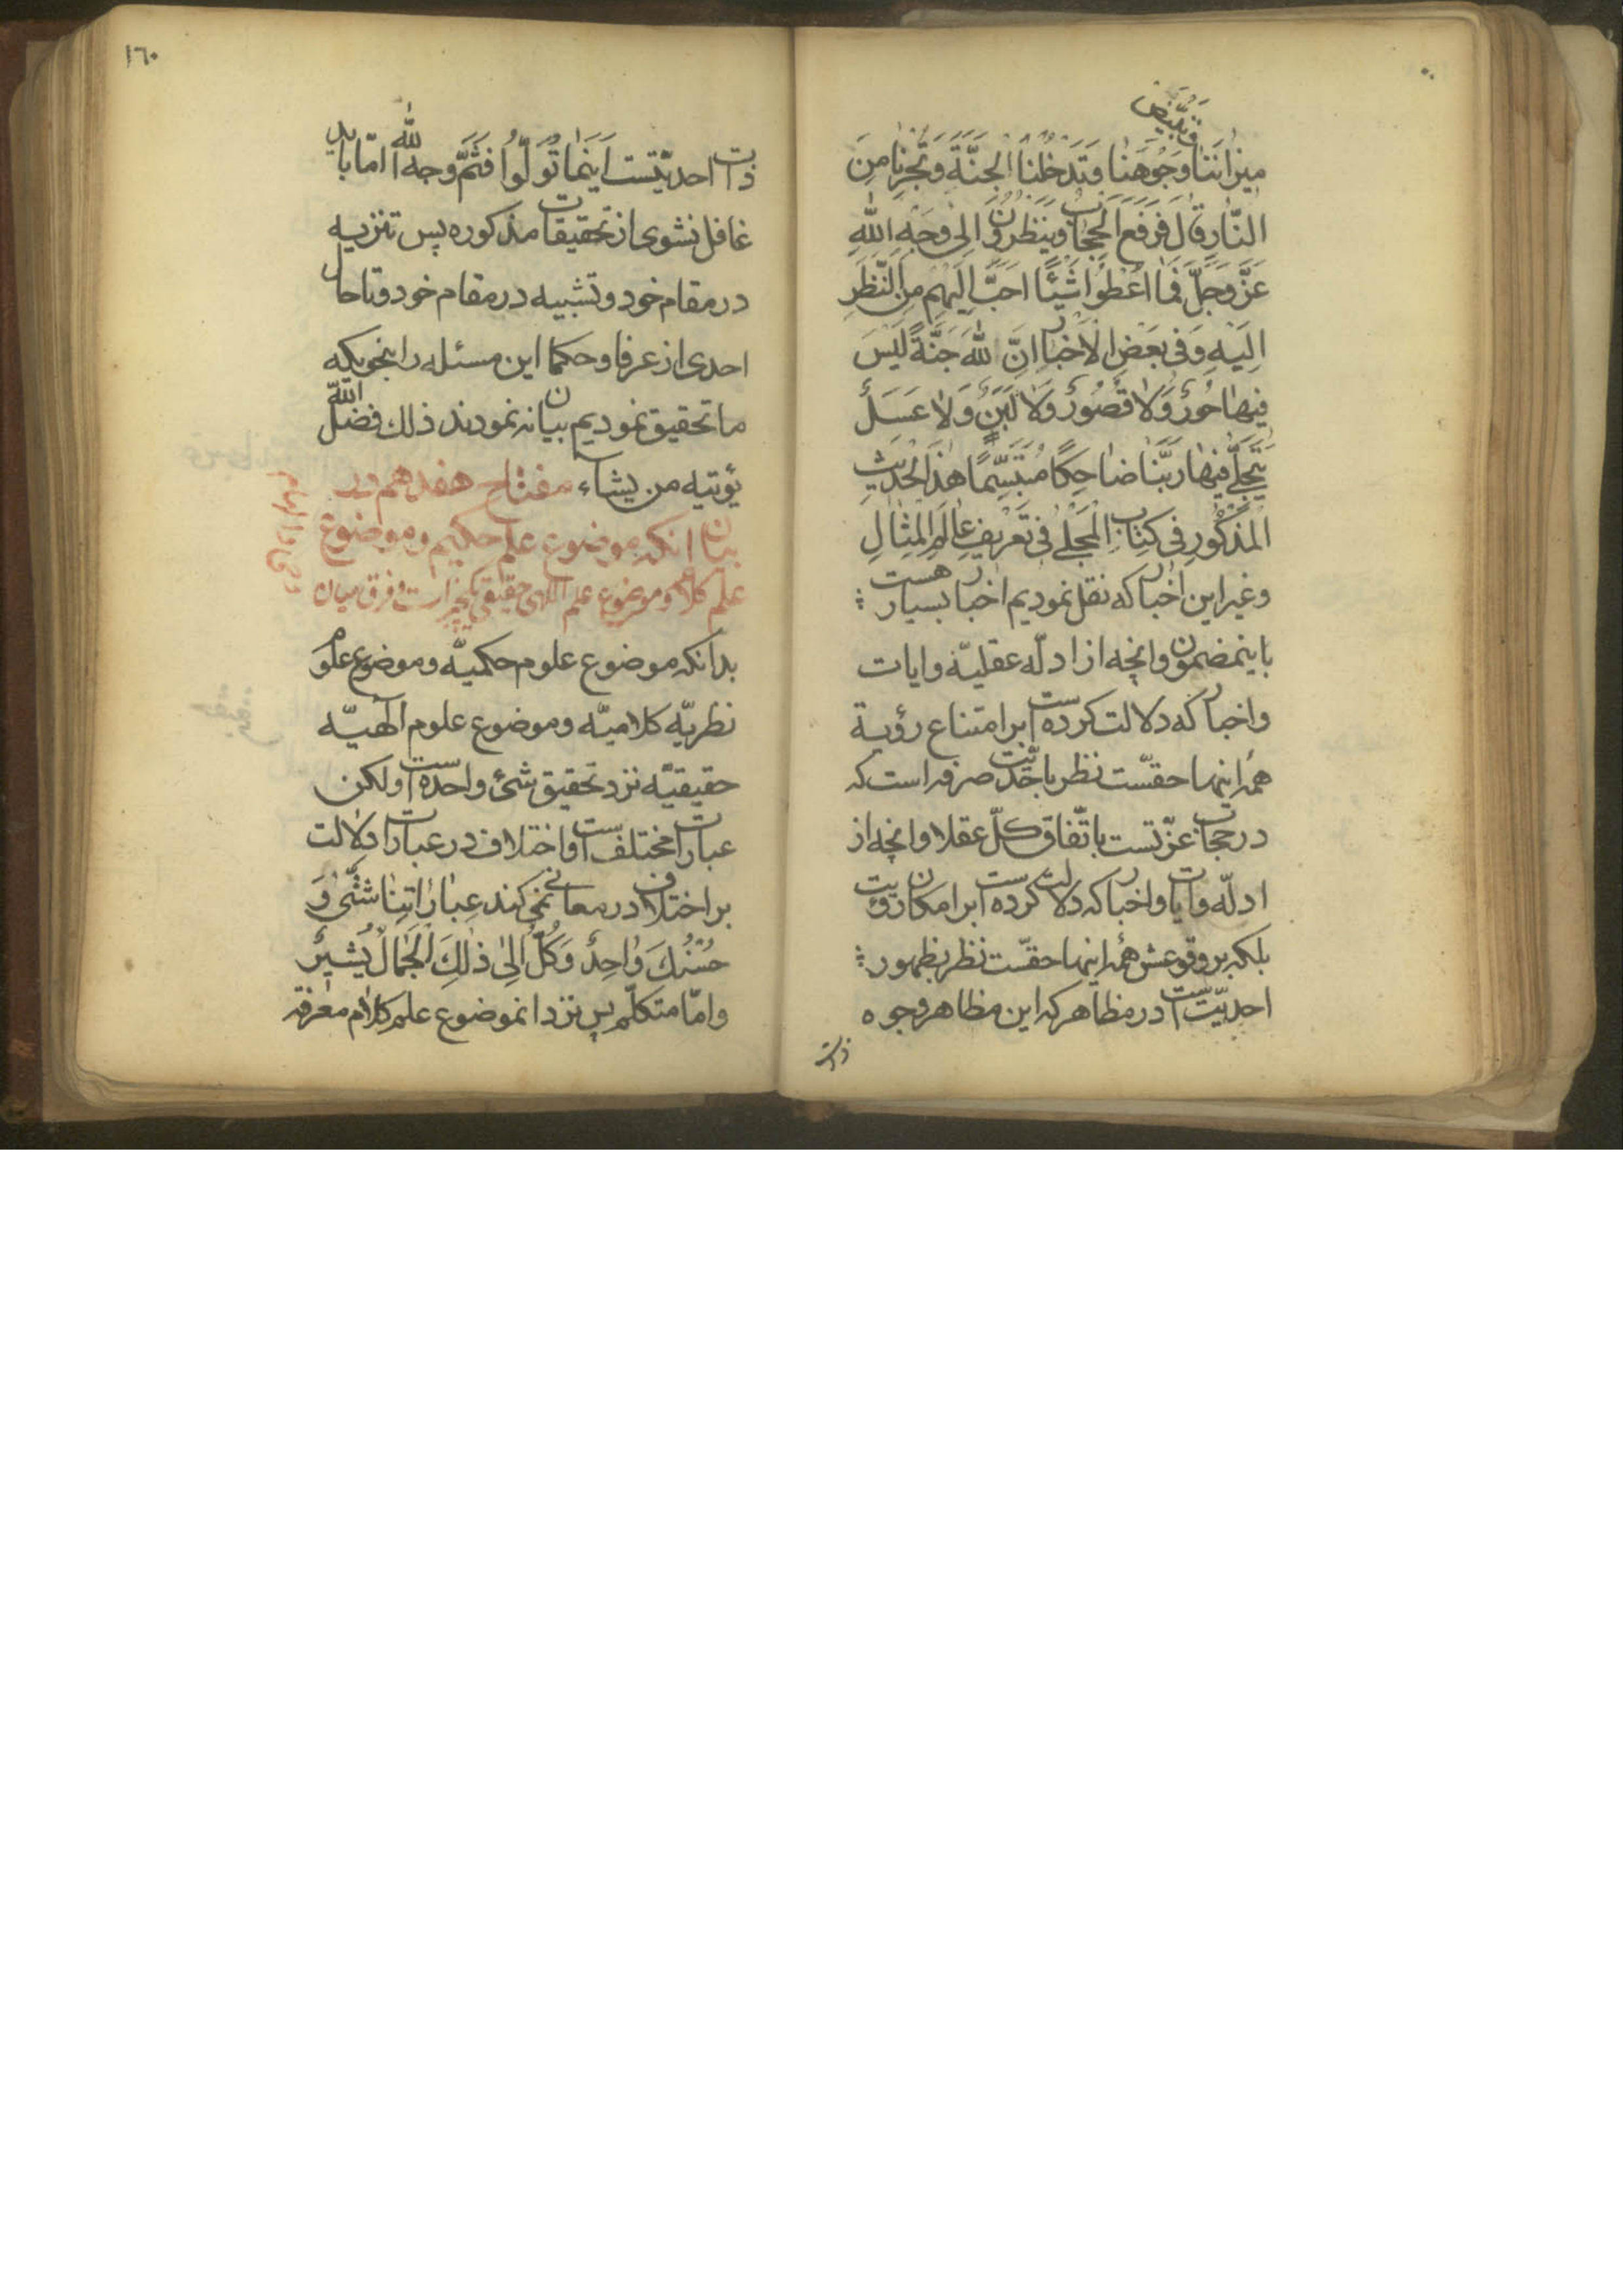 وتبیض
میزاننا وجوهنا وتدخلنا الجنّة وتجرنا من
النّار قال فرفع الحجاب وینظرون الی وجه الله
عزّ وجلّ فما اعطوا شیئًا احبّ الیهم من النّظر
الیه وفی بعض الاخبار انّ لله جنّة لیس
فیها حورٌ ولا قصورٌ ولا لبنٌ ولا عسلٌ
یتجلّی فیها ربّنا ضاحکًا متبسّمًا هذا الحدیث
المذکور فی کتاب المجلی فی تعریف عالم المثال
وغیر این اخبار که نقل نمودیم اخبار بسیار هست
باینمضمون وانچه از ادلّه عقلیّه وایات
واخبار که دلالت کرده است بر امتناع رؤیة
همه اینها حقّست نظر باحدّیت صرفه است که
در حجاب عزّتست باتّفاق کلّ عقلا وانچه از
ادلّه وایات واخبار که دلالت کرده است بر امکان رؤیت
بلکه بر وقوعش همه اینها حقّست نظر بظهور
احدیّتست در مظاهر که این مظاهر وجوه
ذات
١٦٠
ذات احدیّتست اینما تولّوا فثمّ وجه الله امّا باید
غافل نشوی از تحقیقات مذکوره پس تنزیه
در مقام خود وتشبیه در مقام خود وتا حال
احدی از عرفا وحکما این مسئله را بنحویکه
ما تحقیق نمودیم بیان نه نمودند ذلك فضل الله
یؤتیه من یشاء مفتاح هفدهم در
بیان انکه موضوع علم حکیم وموضوع
علم کلام وموضوع علم الهی حقیقی یکچیز است وفرق میان
بدانکه موضوع علوم حکمیّه وموضوع علوم
نظریّه کلامیّه وموضوع علوم الهیّه
حقیقیّه نزد تحقیق شئ واحده است ولکن
عبارات مختلفست واختلاف در عبارات دلالت
بر اختلاف در معانی نمی کند عباراتنا شتّی و
حسنك واحدٌ وکلّ الی ذلك الجمال یشیر
وامّا متکلّم پس نزد انموضوع علم کلام معرفة